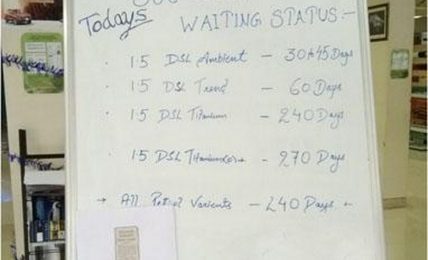 Todays
WAITING STATUS:-
· 1.5 DSL Ambient - 30to45 Days
· 1.5 DSL Trend - 60 Days
· 1.5 DSL Titanium - 240 Days
1.5 DSL Titanium(o) - 270 Days
→ All Petrol Varients - 240 Days ←